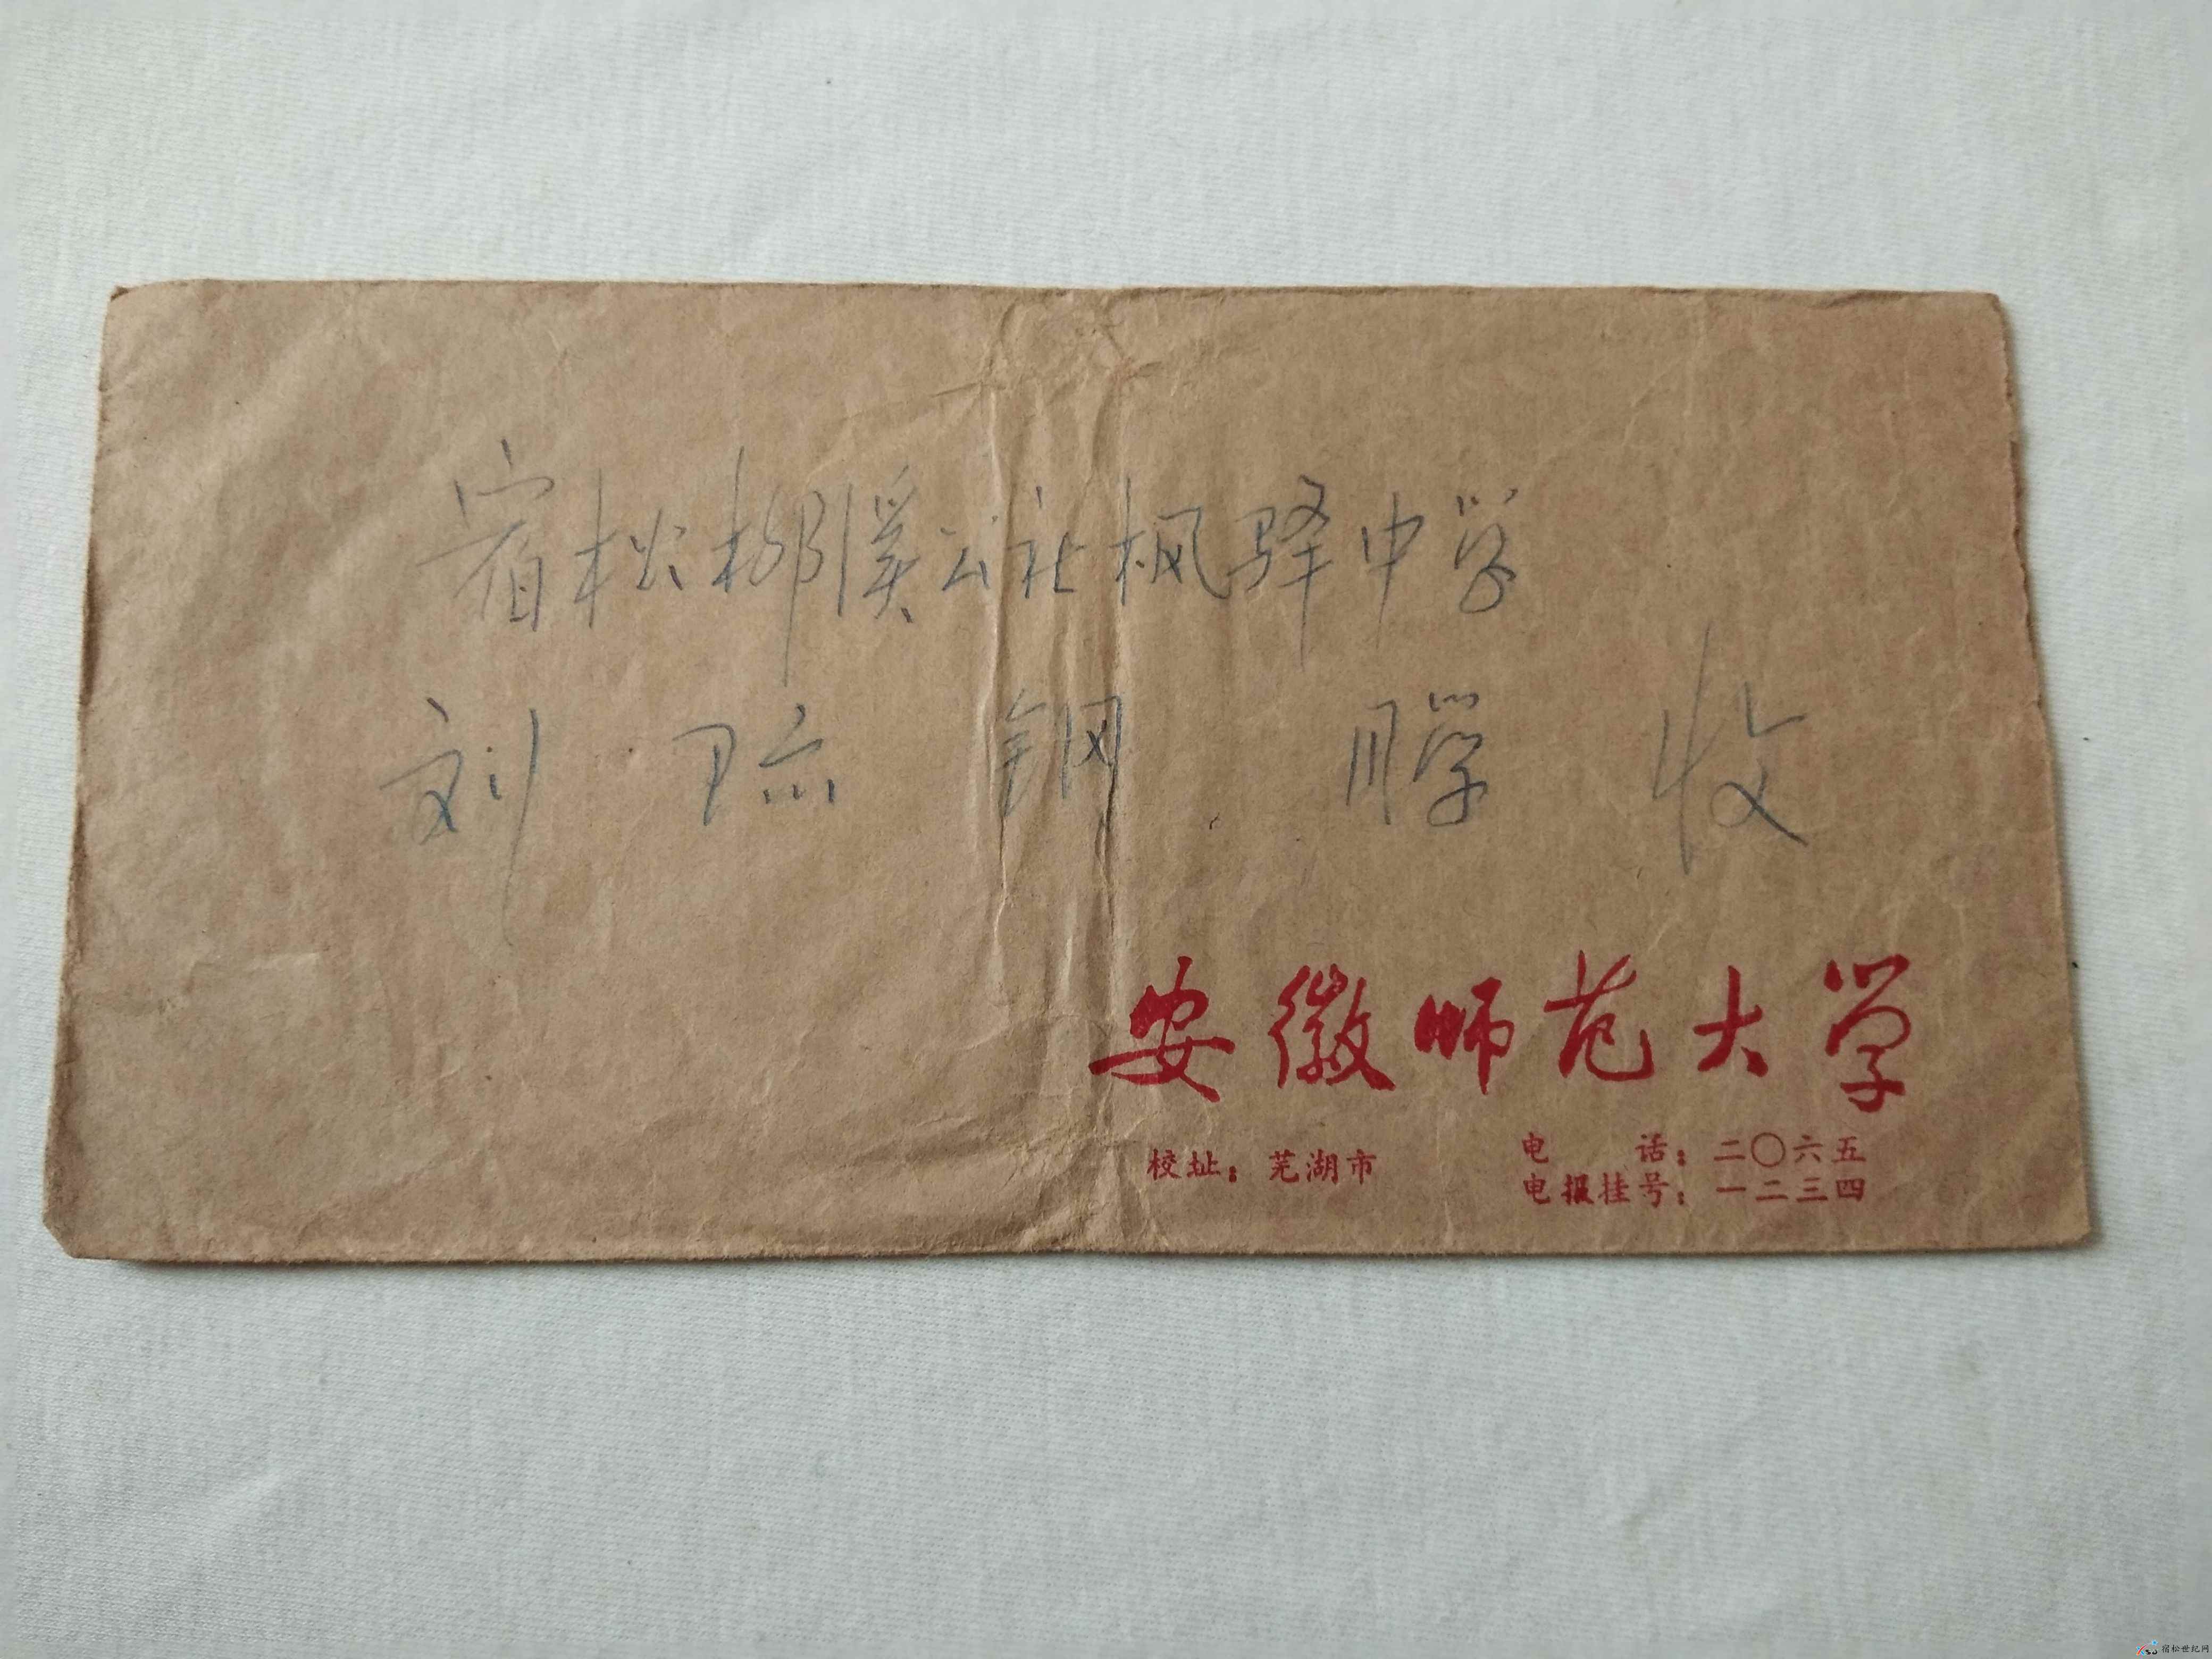 宿松柳溪公社枫驿中学
刘 钢 同学 收
安徽师范大学
校址：芜湖市
电 话：二〇六五
电报挂号：一二三四
宿松世纪网